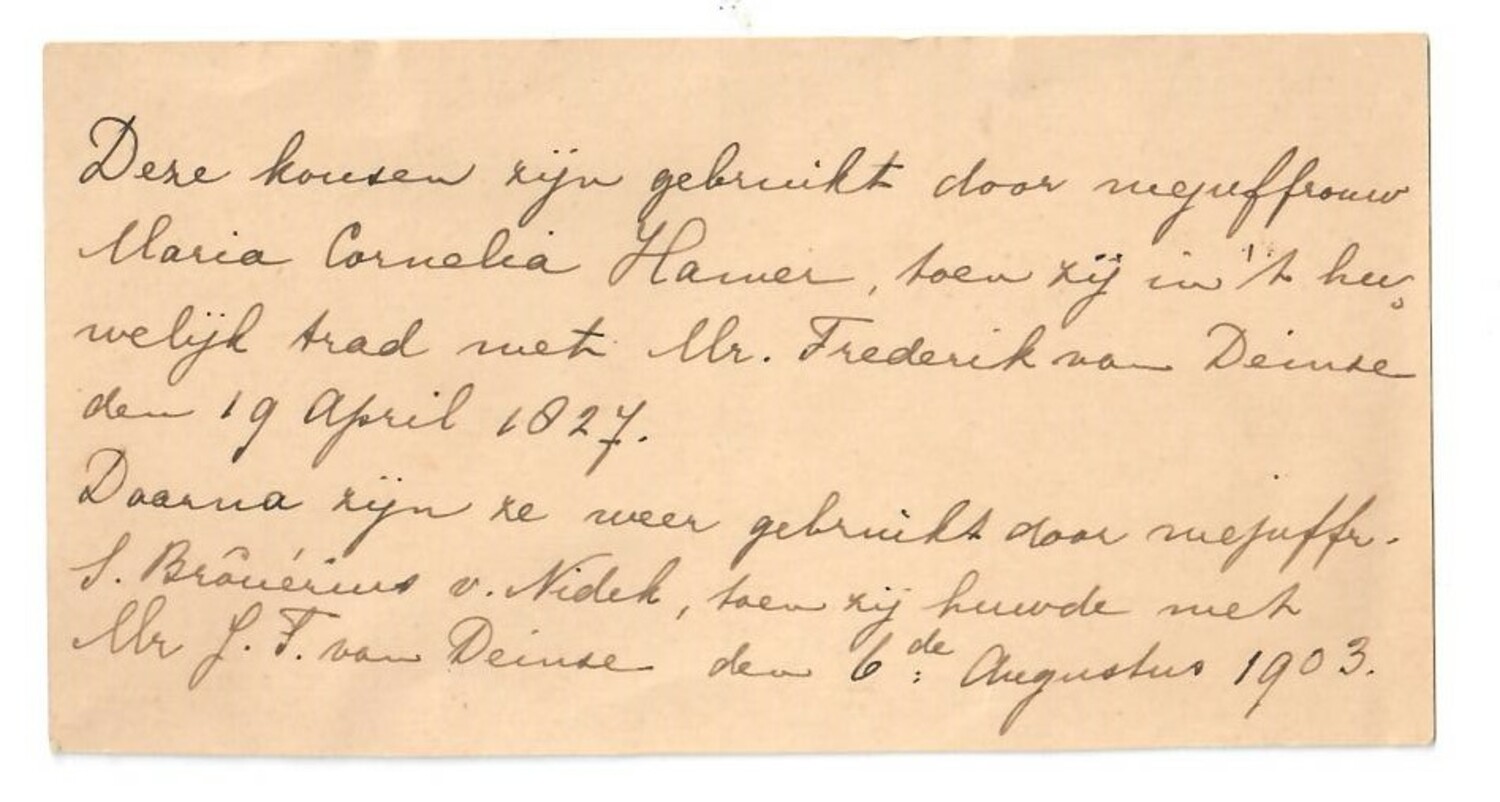 Deze kousen zijn gebruikt door mejuffrouw
Maria Cornelia Hamer, toen zij in 't hu-
welijk trad met Mr. Frederik van Deinse
den 19 April 1827.
Daarna zijn ze weer gebruikt door mejuffr.
S. Brouërius v. Nidek, toen zij huwde met
Mr J. F. van Deinse den 6de Augustus 1903.